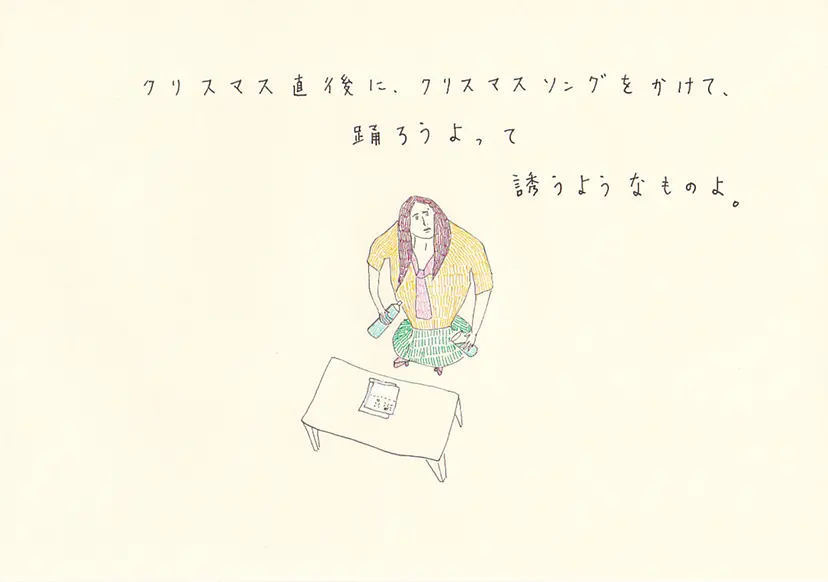 クリスマス直後に、クリスマスソングをかけて、
踊ろうよって
誘うようなものよ。